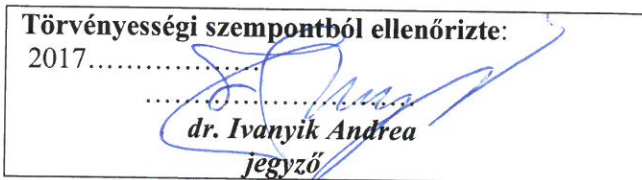 Törvényességi szempontból ellenőrizte:
2017..................
............................
dr. Ivanyik Andrea
jegyző